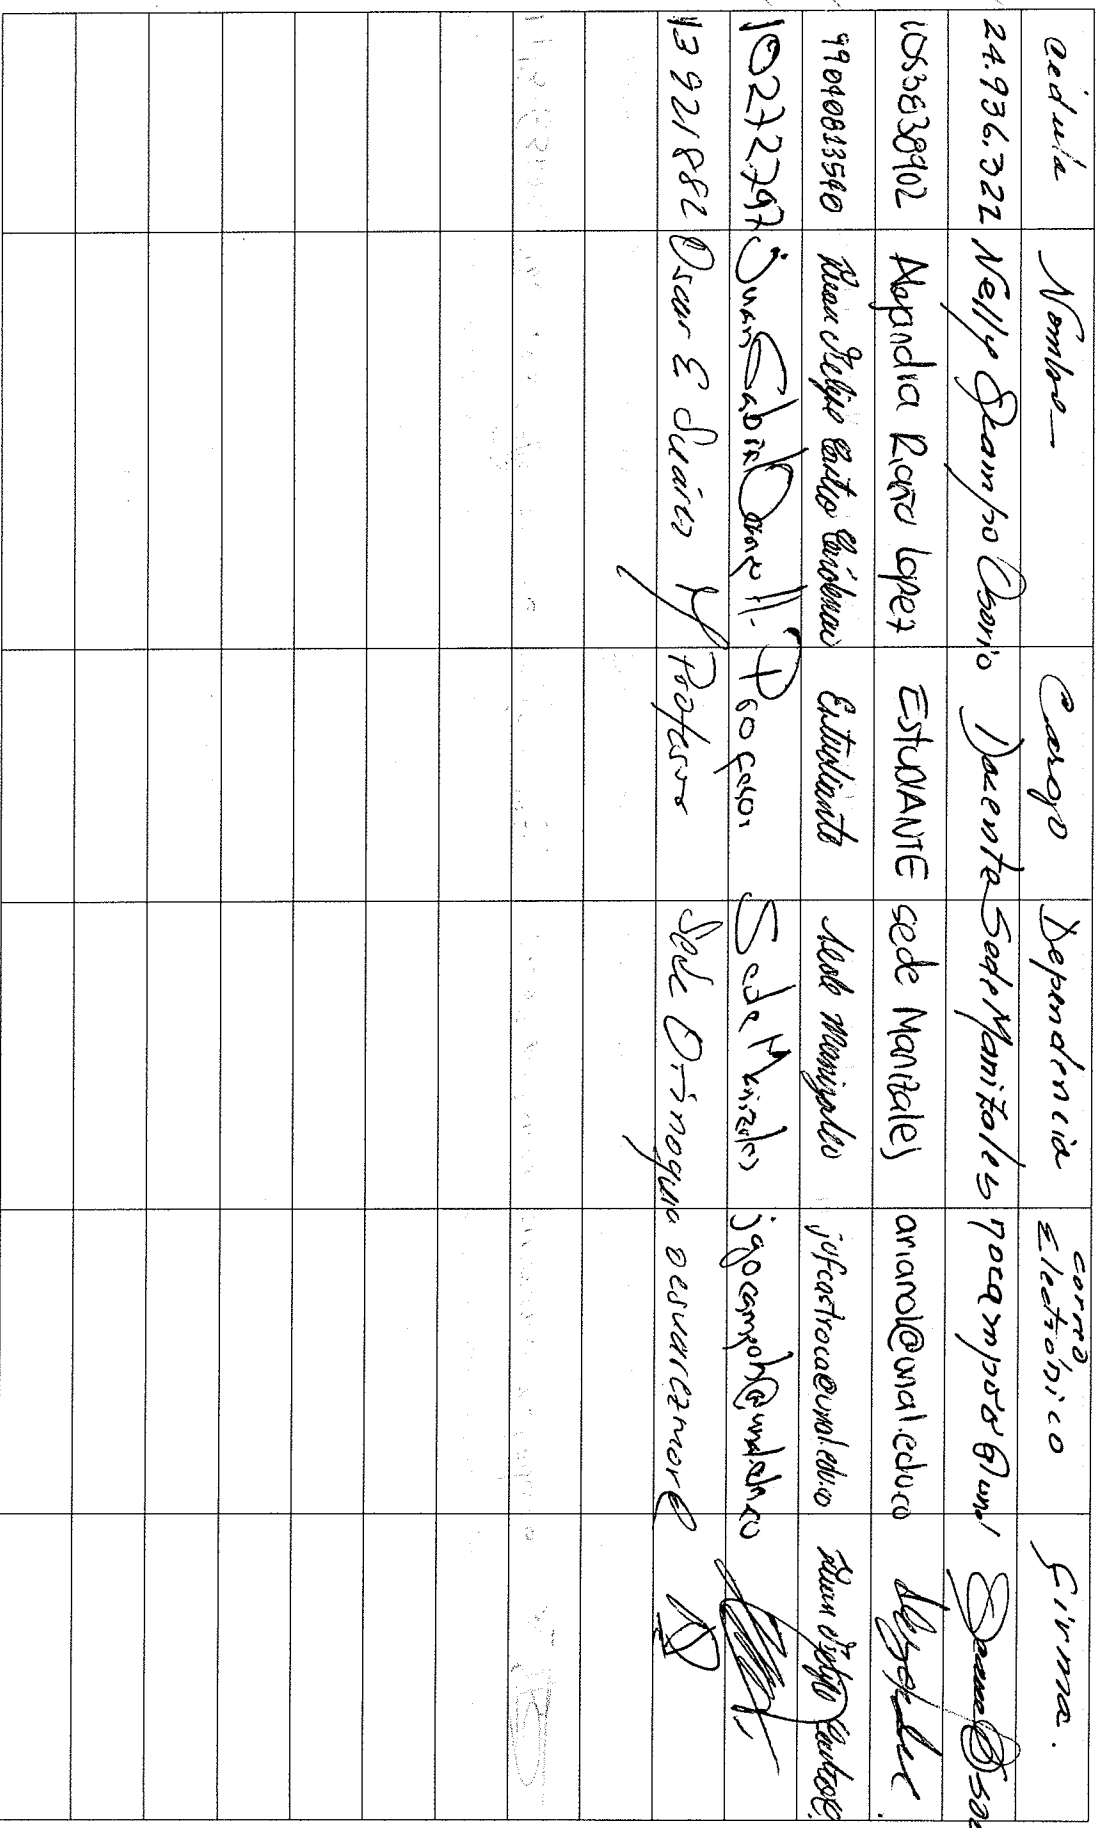 cédula Nombre Cargo Dependencia correo Electrónico Firma.
24.936.322 Nelly Ocampo Osorio Docente Sede Manizales nocampoo@unal
1053838902 Alejandra Riaño Lopez ESTUDIANTE sede Manizales arianol@unal.edu.co
99040813540 Juan Felipe Castro Cárdenas Estudiante Sede Manizales jufcastroca@unal.edu.co Juan Felipe Castro C.
10272797 Juan Gabriel Ocampo H. Profesor Sede Manizales jgocampoh@unal.edu.co
13921882 Oscar E Suárez M Profesor Sede Orinoquia oesuarezmor@